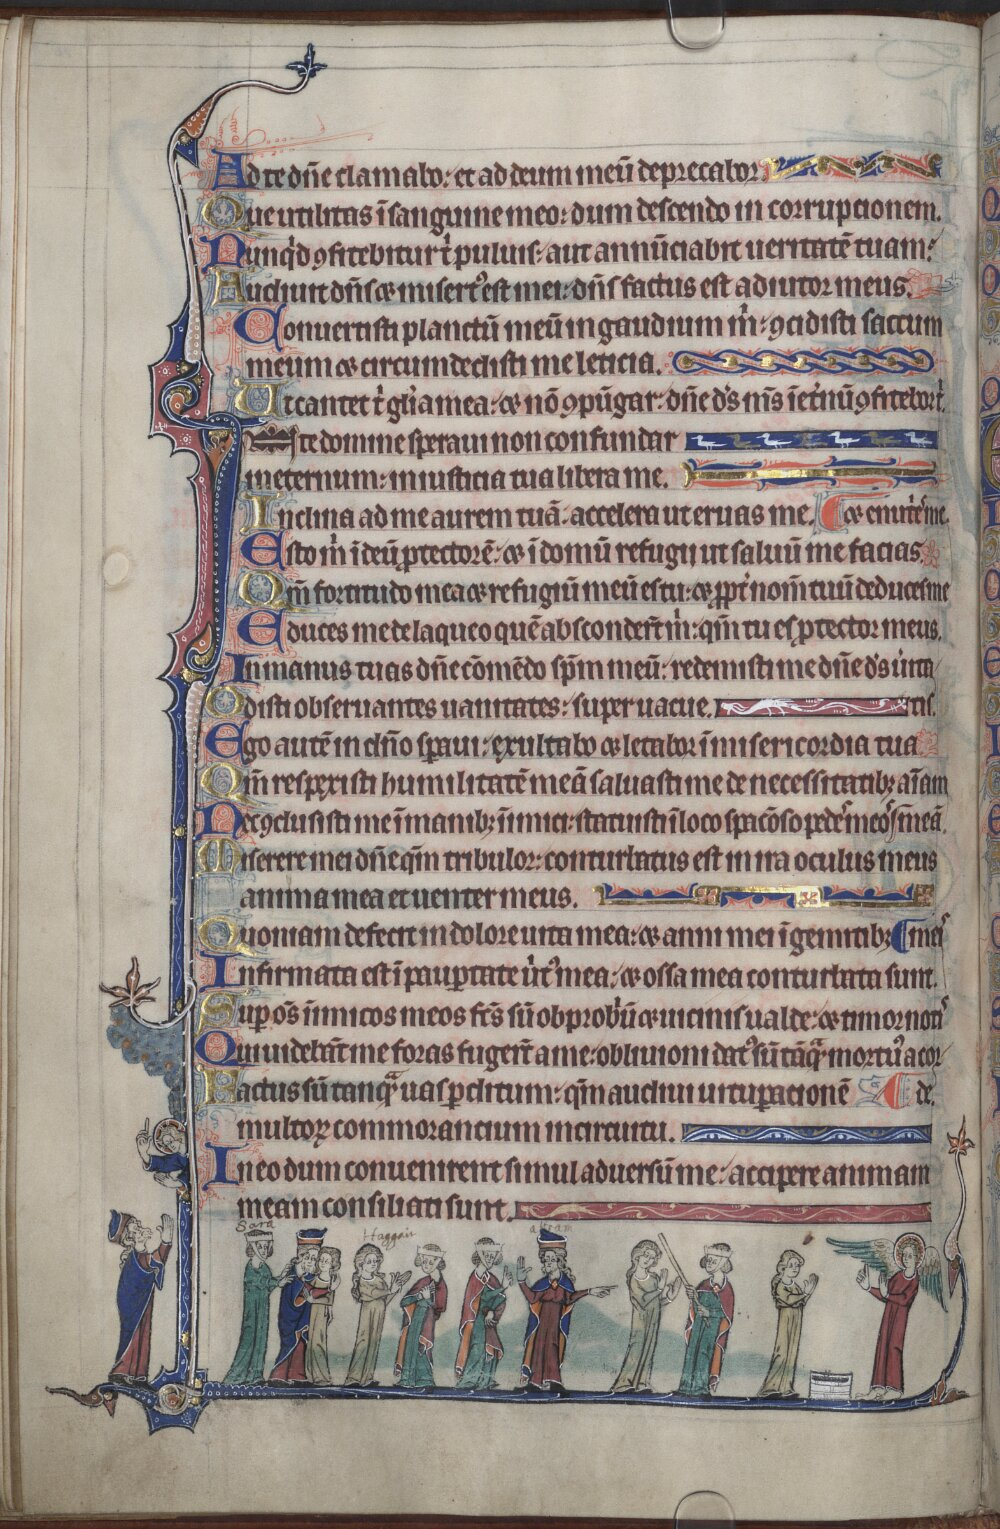 Ad te dn̄e clamabo: et ad deum meū deprecabor
Que utilitas ī sanguine meo: dum descendo in corrupcionem.
Nunq̇d ꝯfitebitur t̄ puluis: aut annūciabit ueritatē tuam:
Audiuit dn̄s ⁊ misertꝰ est mei: dn̄s factus est adiutor meus.
Conuertisti planctū meū in gaudium m̄: ꝯcidisti saccum
meum ⁊ circumdedisti me leticia.
Ut cantet t̄ gl̄ia mea: ⁊ nō ꝯpūgar: dn̄e ds̄ ms̄ ī et̄nū ꝯfitebor t̄.
te domine speraui non confundar
in eternum: in iusticia tua libera me.
Inclina ad me aurem tuā: accelera ut eruas me. ⁊ enut̄ me.
Esto m̄ ī deū ꝓtectorē: ⁊ ī domū refugij ut saluū me facias.
Qm̄ fortitudo mea ⁊ refugiū meū es tu: ⁊ ꝓpt̄ nom̄ tuū deduces me
Educes me de laqueo quē absconder̄t m̄: qm̄ tu es ꝓtector meus.
In manus tuas dn̄e cōmēdo sp̄m meū: redemisti me dn̄e ds̄ uita
Odisti obseruantes uanitates: super uacue. tis.
Ego autē in dn̄o sp̄aui: exultabo ⁊ letabor ī misericordia tua
Qm̄ respexisti humilitatē meā saluasti me de necessitatibꝫ aīam
Nec ꝯclusisti me ī manibꝫ inimici: statuisti ī loco spacioso pedes meos meā.
Miserere mei dn̄e qm̄ tribulor: conturbatus est in ira oculus meus
anima mea et uenter meus.
Quoniam defecit in dolore uita mea: ⁊ anni mei ī gemitibꝫ
Infirmata est ī paup̱tate ūtꝰ mea: ⁊ ossa mea conturbata sunt.
Sup̱ os̄ inimicos meos fc̄s sū obprobriū ⁊ uicinis ualde: ⁊ timor noti
Qui uidebāt me foras fuger̄t a me: obliuioni datꝰ sū tāq̄ mortuꝰ a cor
Factus sū tanq̄ uas p̱ditum: qm̄ audiui uitup̱acionē de.
multoꝝ commorancium in circuitu.
In eo dum conuenirent simul aduersū me: accipere animam
meam consiliati sunt.
Sara Haggar abram